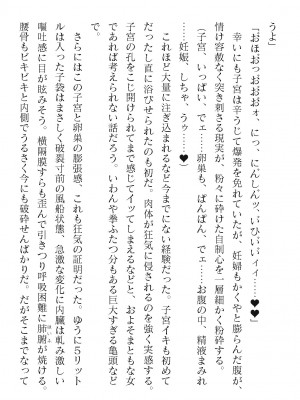 うよ」
「おほおっおぉおぉ、にっ、にんしんッ、いひいいイィ……♥♥」
幸いにも子宮は辛うじて爆発を免れていたが、妊婦もかくやと膨らんだ腹が、
情け容赦なく突き刺さる現実が、粉々に砕けた自制心を一層細かく粉砕する。
「子宮、いっぱい、でェ……卵巣も、ぱんぱん、でェ……お腹の中、精液まみれ
……妊娠、しちゃ、うゥ……♥」
これほど大量に注ぎ込まれるなど今までにない経験だった。子宮イキも初めて
だったし直に浴びせられたのも初だ。肉体が狂気に侵されるのを強く実感する。
子宮の孔をこじ開けられてまで感じてイッてしまうことなど、およそまともな女
であれば考えられない話だろう。いわんや拳ふたつ分もある巨大すぎる亀頭など
さらにはこの子宮と卵巣の膨張感、これも狂気の証明だった。ゆうに5リット
ルは入った子袋はまさしく破裂寸前の風船状態、急激な変化に内臓は軋み激しい
嘔吐感に目が眩みそう。横隔膜すらも歪んで引きつり呼吸困難に肺腑が焼ける。
腰骨もビキビキと内側でうるさく今にも破砕せんばかりだ。だがそこまでなって